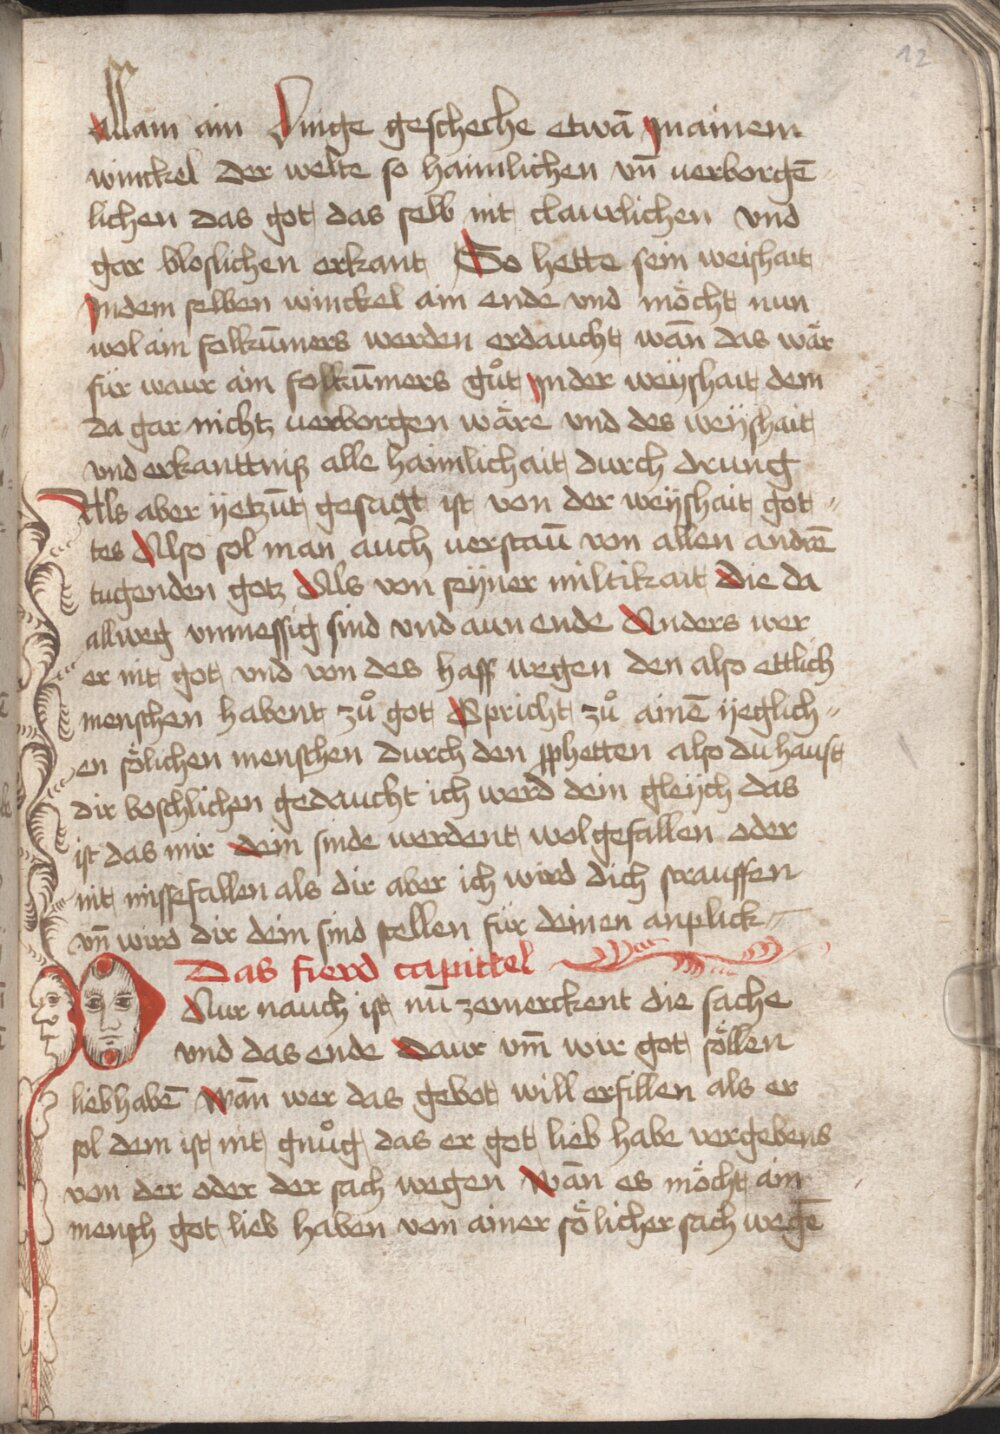 12
Wam ain Dinge gescheche etwā Jn ainem
winckel der welte so haimlichen vn̄ uerborgē
lichen das got das selb nit claurlichen vnd
gar bloslichen erkant So hette sein weishait
Jndem selben winckel ain ende vnd möcht nun
wol ain folkūmers werden erdaucht wān das wär
für waur ain folkūmers gůt Jn der weyshait dem
da gar nicht uerborgen wäre vnd des weyshait
vnd erkanttniß alle haimlichait durch drung
Als aber yetzūt gesagt ist von der weyshait got-
tes Also sol man auch uerstaū von allen andrē
tugenden gotz Als von seyner miltikait Die da
allweg vnmessig sind vnd aun ende Anders wer
er nit got vnd von des hass wegen den also ettlich
menschen habent zů got Spricht zů ainē yeglich-
en sölichen menschen durch den pphetten also du haust
dir boschlichen gedaucht ich werd dein gleych das
ist das mir dein sinde werdent wol gefallen oder
nit missefallen als dir aber ich wird dich strauffen
vn̄ wird dir dein sind stellen für deinen anplick
Das fierd capittel
Dar nauch ist nū zemerckent die sache
vnd das ende Daur vm̄ wir got söllen
lieb habē Wān wer das gebot will erfillen als er
sol dem ist nit gnůg das er got lieb habe vergebens
von der oder der sach wegen Wān es möcht ain
mensch got lieb haben von ainer sölicher sach wegē